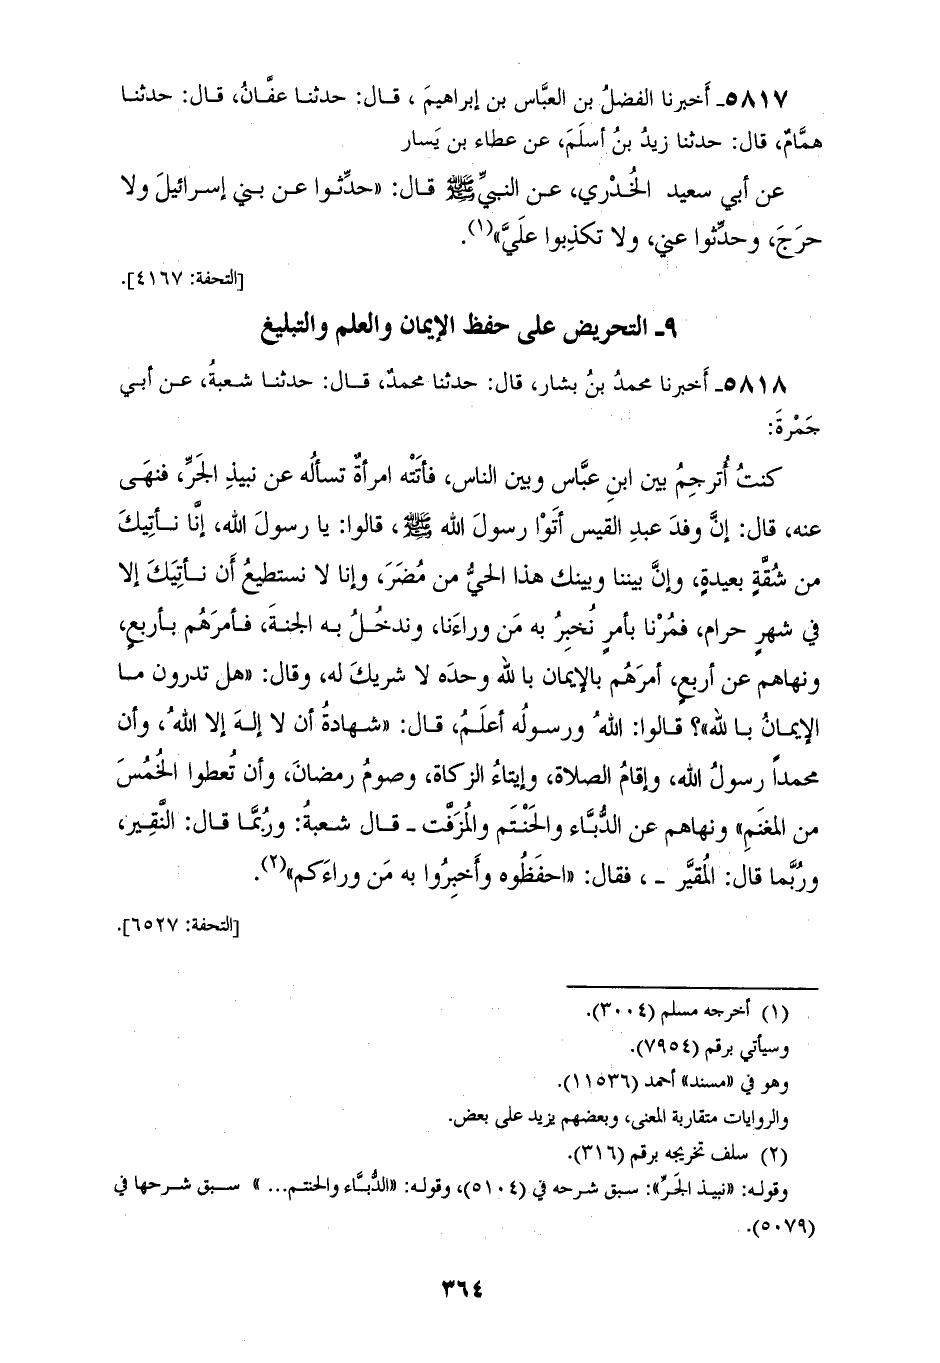 ٥٨١٧ـ أَخبرنا الفضلُ بن العبَّاس بن إبراهيمَ ، قـال: حدثنـا عفَّـانُ، قـال: حدثنـا
همَّامٌ، قال: حدثنا زيدُ بنُ أسلَمَ، عن عطاء بن يَسار
عن أبي سعيد الخُدْري، عـن النبيِّ ﷺ قـال: «حدِّثـوا عـن بـني إسـرائيلَ ولا
حرَجَ، وحدِّثوا عني، ولا تكذِبوا علَيَّ»(١).
[التحفة: ٤١٦٧].
٩ـ التحريض على حفظ الإيمان والعلم والتبليغ
٥٨١٨ـ أَخبرنا محمدُ بنُ بشار، قال: حدثنا محمدٌ، قـال: حدثنـا شعبةُ، عـن أبـي
جَمْرةَ:
كنتُ أُترجِمُ بين ابنِ عبَّاس وبين الناس، فأتَتْه امرأةٌ تسألُه عن نبيذِ الجَرِّ، فنهَـى
عنه، قال: إنَّ وفدَ عبدِ القيس أتَوْا رسولَ الله ﷺ، قالوا: يا رسولَ الله، إنَّا نـأتِيكَ
من شُقَّةٍ بعيدةٍ، وإنَّ بيننا وبينك هذا الحيُّ من مُضَرَ، وإنا لا نستطيعُ أَن نـأتِيَكَ إلا
في شهرٍ حرام، فمُرْنا بأمرٍ نُخبِرُ به مَن وراءَنا، وندخُـلُ بـه الجنـةَ، فـأمرَهُم بـأربعٍ،
ونهاهم عن أربعٍ، أمرَهُم بالإيمان با لله وحدَه لا شريكَ له، وقال: «هل تدرون مـا
الإيمـانُ بـا لله»؟ قـالوا: اللهُ ورسـولُه أعلَـمُ، قـال: «شـهادةُ أن لا إلـهَ إلا اللهُ، وأن
محمداً رسولُ الله، وإقامُ الصلاة، وإيتاءُ الزكاة، وصومُ رمضانَ، وأن تُعطوا الخُمُسَ
من المغنَمِ» ونهاهم عن الدُّبَّاء والحَنْـتَم والمُزَفَّت ـ قـال شـعبةُ: ورُبَّمَـا قـال: النَّقِـير،
ورُبَّما قال: المُقيَّر ـ ، فقال: «احفَظُوه وأَخبِرُوا به مَن وراءَكم»(٢).
[التحفة: ٦٥٢٧].
(١) أخرجه مسلم (٣٠٠٤).
وسيأتي برقم (٧٩٥٤).
وهو في «مسند» أحمد (١١٥٣٦).
والروايات متقاربة المعنى، وبعضهم يزيد على بعض.
(٢) سلف تخريجه برقم (٣١٦).
وقولـه: «نبيـذ الجَـرِّ»: سبق شرحه في (٥١٠٤)، وقولـه: «الدُّبَّـاء والحنتـم... » سـبق شـرحها في
(٥٠٧٩).
٣٦٤